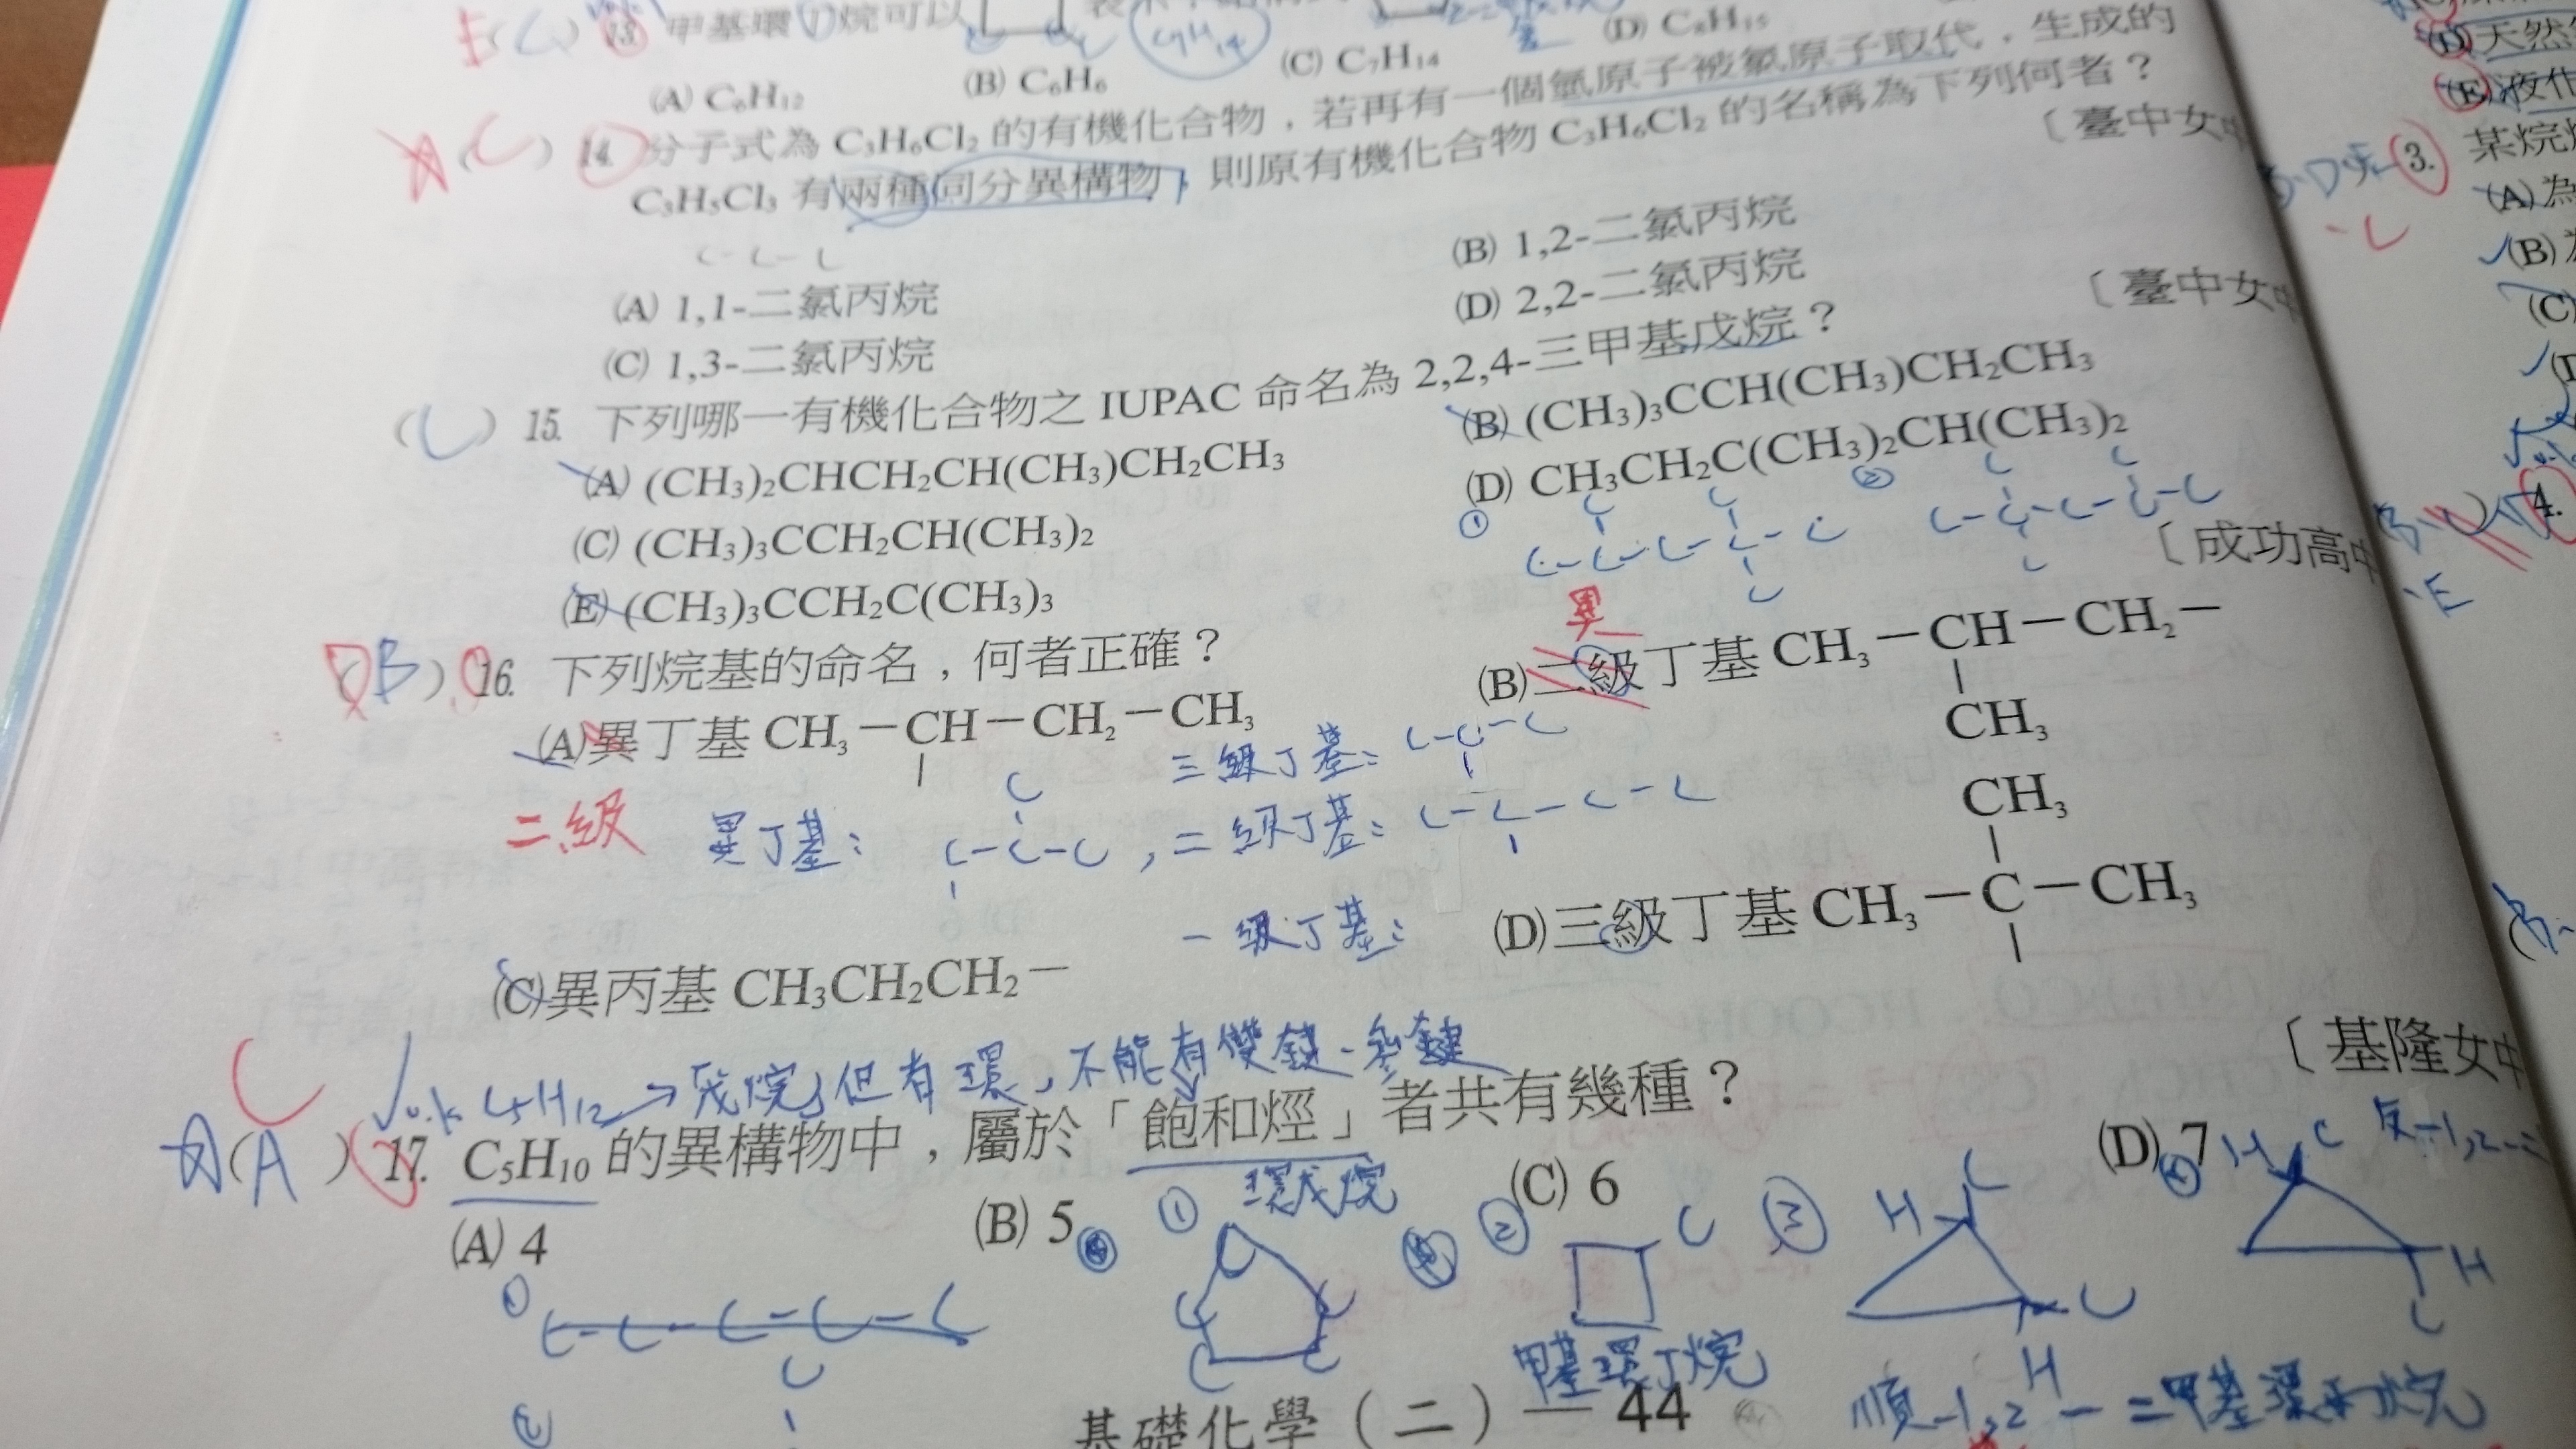 E (C) 13. 甲基環丁烷可以
(A) C₆H₁₂ (B) C₆H₆ (C) C₇H₁₄ (D) C₈H₁₅
A (C) 14. 分子式為 C₃H₆Cl₂ 的有機化合物，若再有一個氫原子被氯原子取代，生成的
C₃H₅Cl₃ 有兩種同分異構物，則原有機化合物 C₃H₆Cl₂ 的名稱為下列何者？
〔臺中女中
C-C-C
(A) 1,1-二氯丙烷 (B) 1,2-二氯丙烷
(C) 1,3-二氯丙烷 (D) 2,2-二氯丙烷
〔臺中女中
(C) 15. 下列哪一有機化合物之 IUPAC 命名為 2,2,4-三甲基戊烷？
(A) (CH₃)₂CHCH₂CH(CH₃)CH₂CH₃ (B) (CH₃)₃CCH(CH₃)CH₂CH₃
(C) (CH₃)₃CCH₂CH(CH₃)₂ (D) CH₃CH₂C(CH₃)₂CH(CH₃)₂
(E) (CH₃)₃CCH₂C(CH₃)₃
〔成功高中
D (B) 16. 下列烷基的命名，何者正確？
(A)異丁基 CH₃－CH－CH₂－CH₃ (B)二級丁基 CH₃－CH－CH₂－
異
CH₃
二級 異丁基： C-C-C，二級丁基： C-C-C-C
三級丁基： C-C-C
一級丁基：
(C)異丙基 CH₃CH₂CH₂－ (D)三級丁基 CH₃－C－CH₃
CH₃
〔基隆女中
C √o.k C₅H₁₂→「戊烷」但有環，不能有雙鍵、參鍵
(A) 17. C₅H₁₀ 的異構物中，屬於「飽和烴」者共有幾種？
(A) 4 (B) 5 (C) 6 (D) 7
① 環戊烷 ② 甲基環丁烷 ③ 順-1,2-二甲基環丙烷
反-1,2-二
基礎化學（二）— 44
天然
(E)液化
3. 某烷
(A)為
(B)
(C)
4.